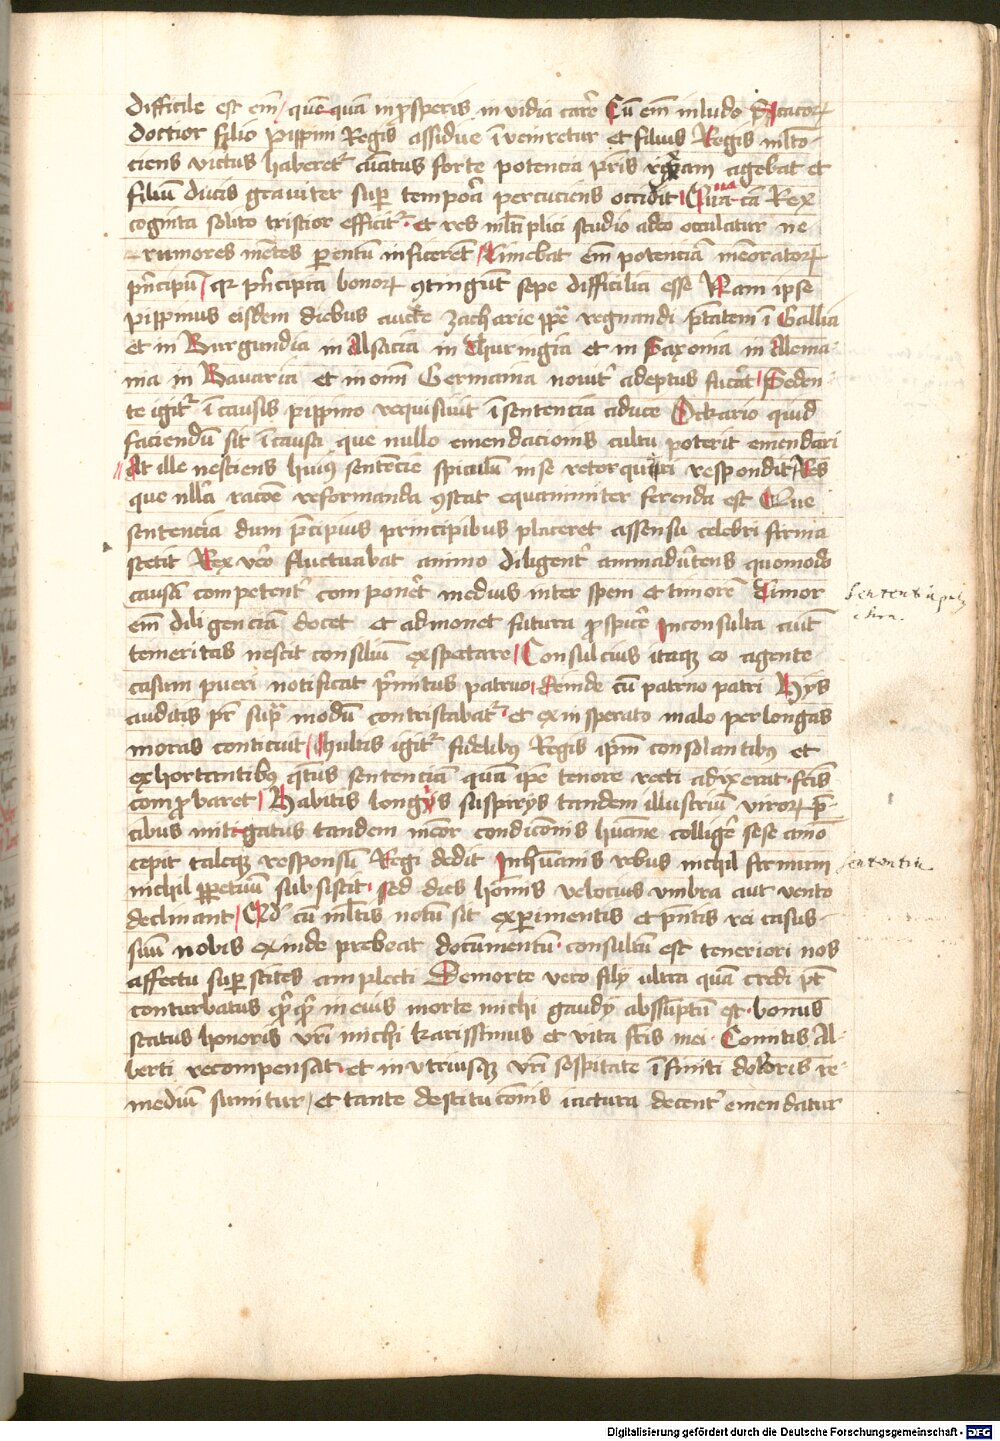 difficile est em̄ / quēquā in ꝓsperis invidia carē Cū em̄ in ludo
doctior filio pippini Regis assidue ī veniretur et filius Regis mĺto
ciens victus haberet forte potencia pr̄is agebat et
filiū ducis graviter suꝑ tempora percuciens occidit Qua cā Rex
cognita solito tristior efficit̄ et res mĺtiplici studio adeo occulatur ne
rumores mētes ꝑentū inficerēt / timebat em̄ potenciā meorator̄
pñcipū / qr pñcipia bonor̄ ꝯtingūt sepe difficilia esse Nam ipse
pippinus eisdem diebus zacharie pp̄e regnandi ptātem ī Gallia
et in Burgundia in Alsacia in thuringia et in Saxonia in Alema
nia in Bavaria et in om̄i Germania adeptus fuerat / Seden
te igit̄ ī causis pippino requisiuit ī sentencia a duce Ockario quid
faciendū sit ī causa que nullo emendacionis cultu poterit emendari
At ille nesciens huiꝰ sentēcie spiculū in se retorqueri respondit Res
que nĺla racōe reformanda ꝯstat equanimiter ferenda est Que
sentencia dum p̄cipuis principibus placeret assensu celebri firma
stetit Rex vero fluctuabat animo diligent̄ animadv̄tens quomodo
causā competent̄ componēt medius inter spem et timorē Timor
em̄ diligenciā docet et admonet futura ꝓspicē Inconsulta aut
temeritas nescit consiliū exspectare / Consulcius itaqꝫ eo agente
casum pueri notificat p̄mitus patruo / deinde cū patruo patri Hys
auditis pr̄ sup̄ modū contristabat̄ et ex insperato malo per longas
moras conticuit / Multis igit̄ fidelibꝰ Regis ip̄m consolantibꝰ et
exhortantibꝰ q̄tus sentenciā quā ip̄e tenore recti adixerat fc̄is
comꝓbaret / Habitis longis suspirys tandem illustriū viror̄ p̄
cibus mitigatus tandem condicōnis hūane colligē sese aīo
cepit talēqꝫ responsū Regi dedit In hūanis rebus nichil firmum
nichil ꝑpetuū subsistit / sed dies hoīnis velocius vmbra aut vento
declinant / Qd̄ cū mĺtis notū sit experimentis et pñtis rei casus
suū nobis exinde prebeat documentū consultū est teneriori nos
affectu suꝑstites amplecti De morte vero fily ultra quā credi pt̄
conturbatus in eius morte michi gaudy absūptū est bonus
status honoris vr̄i michi karissimus et vita fr̄is mei Comitis Al
berti recompensat / et in vtriusqꝫ vr̄i sospitate ī finiti doloris re
mediū sumitur / et tante destitucōnis iactura decent̄ emendatur
sententia
Digitalisierung gefördert durch die Deutsche Forschungsgemeinschaft - DFG